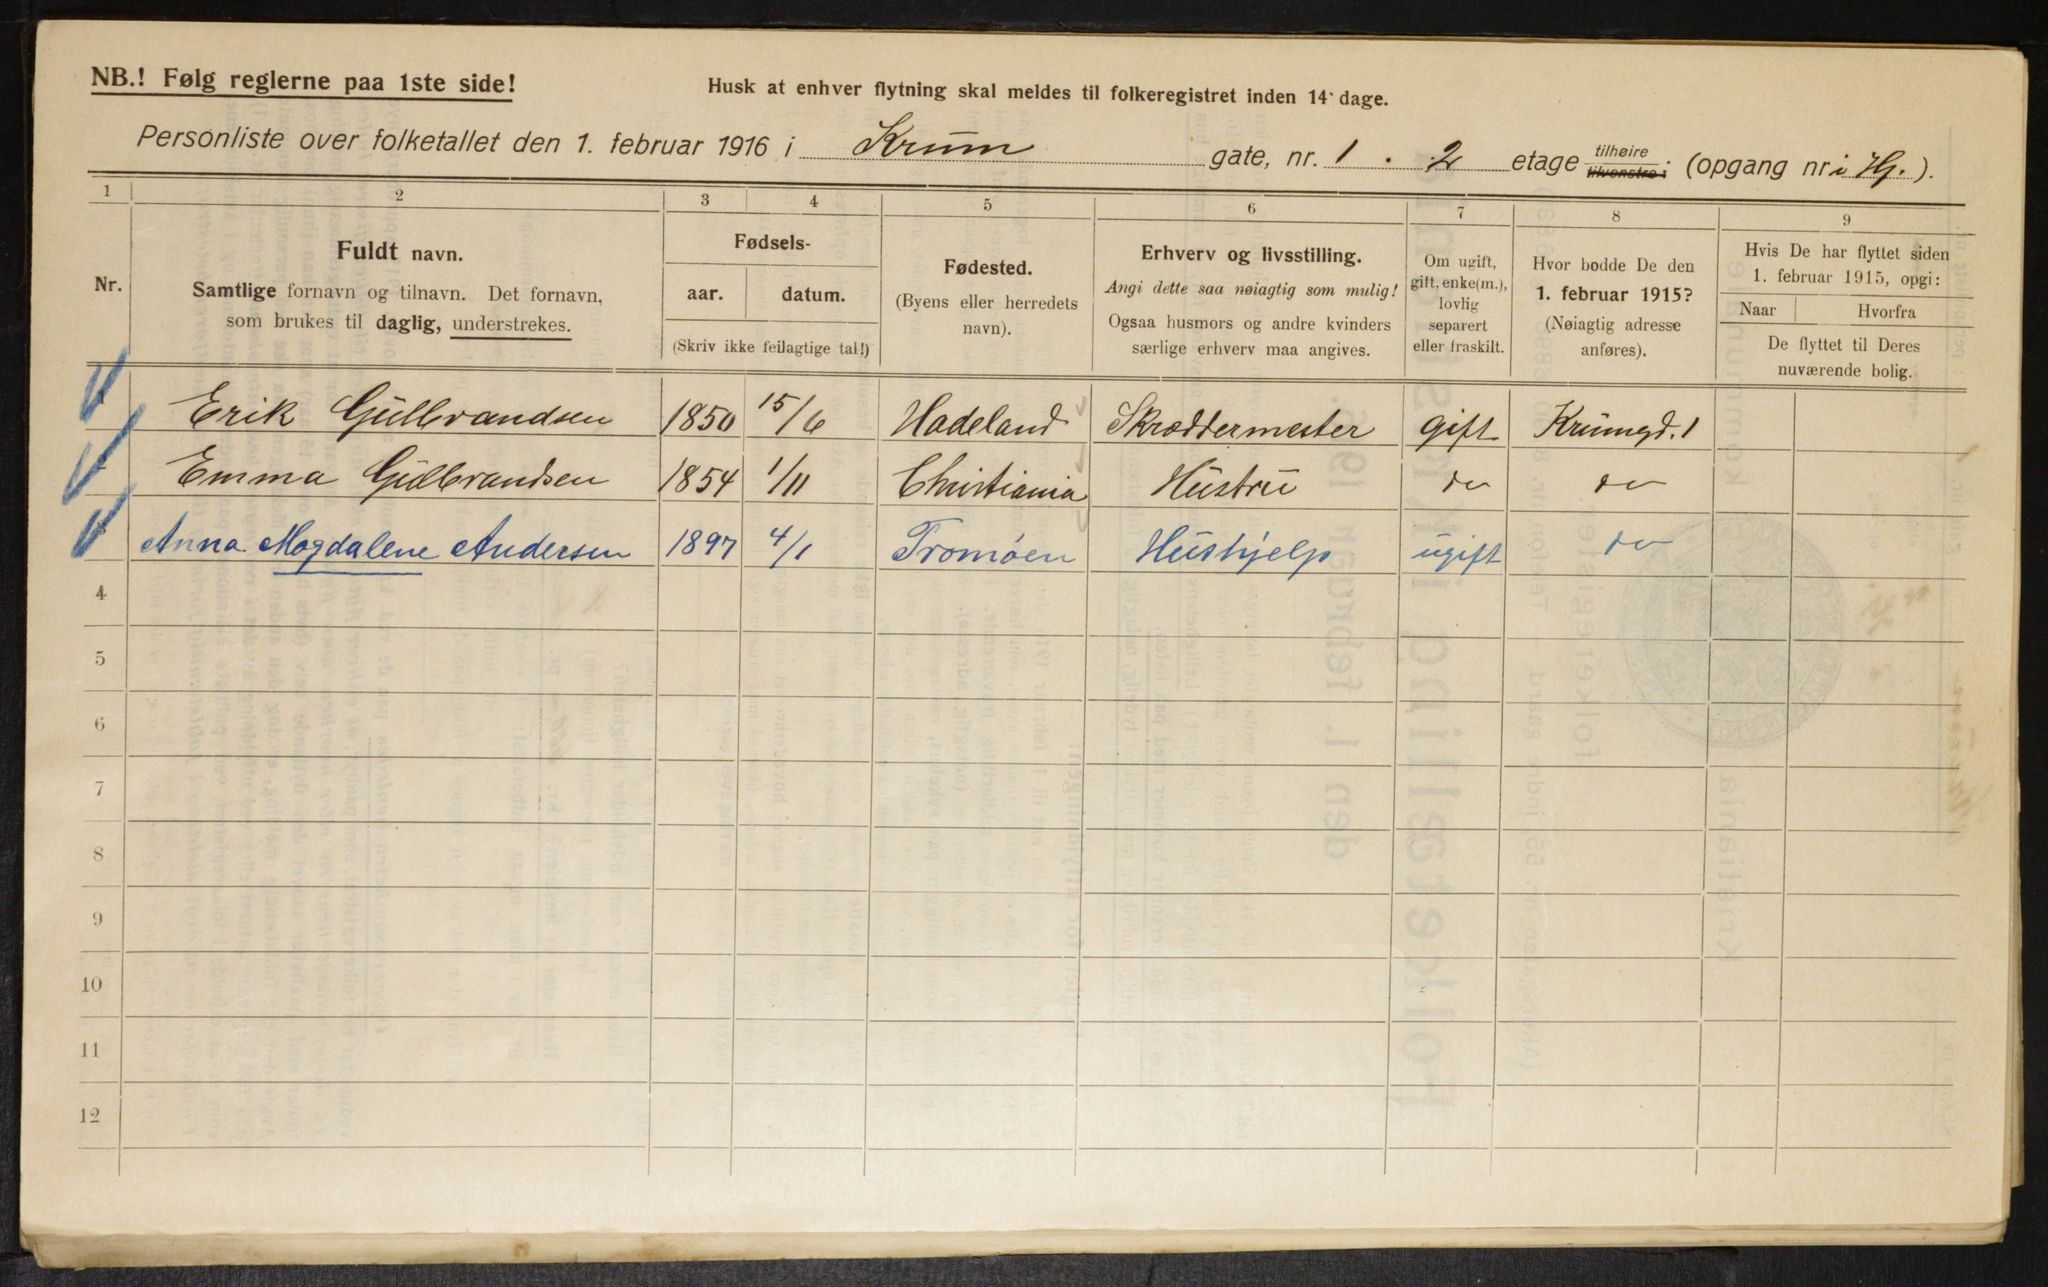 NB.! Følg reglerne paa 1ste side!
Husk at enhver flytning skal meldes til folkeregistret inden 14 dage.
Personliste over folketallet den 1. februar 1916 i Krum gate, nr. 1 . 2 etage tilhøire tilvenstre: (opgang nr. i Hg. ).
1 2 3 4 5 6 7 8 9
Nr.
Fuldt navn.
Samtlige fornavn og tilnavn. Det fornavn,
som brukes til daglig, understrekes.
Fødsels-
aar. datum.
(Skriv ikke feilagtige tal!)
Fødested.
(Byens eller herredets
navn).
Erhverv og livsstilling.
Angi dette saa nøiagtig som mulig!
Ogsaa husmors og andre kvinders
særlige erhverv maa angives.
Om ugift,
gift, enke(m.),
lovlig
separert
eller fraskilt.
Hvor bodde De den
1. februar 1915?
(Nøiagtig adresse
anføres).
Hvis De har flyttet siden
1. februar 1915, opgi:
Naar Hvorfra
De flyttet til Deres
nuværende bolig.
Erik Gullbrandsen 1850 15/6 Hadeland Skræddermester gift Krumgd. 1
Emma Gullbrandsen 1854 1/11 Christiania Hustru do do
Anna Magdalene Andersen 1897 4/1 Tromøen Hushjelp ugift do
4
5
6
7
8
9
10
11
12